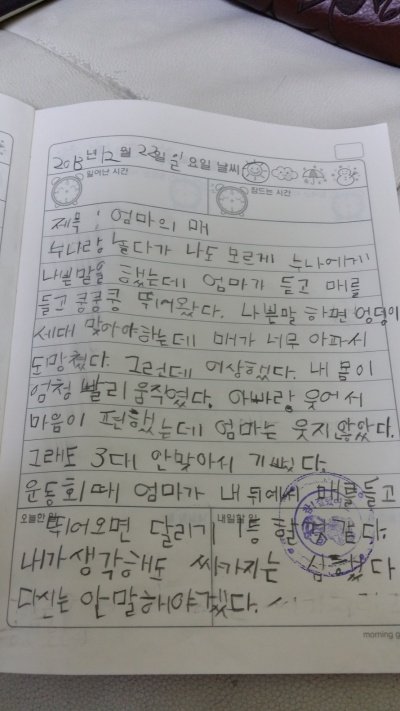 2013년 12월 22일 일요일 날씨
일어난 시간 잠드는 시간
제목 : 엄마의 매
누나랑 놀다가 나도 모르게 누나에게
나쁜말을 했는데 엄마가 듣고 매를
들고 쿵쿵쿵 뛰어왔다. 나쁜말 하면 엉덩이
세대 맞아야하는데 매가 너무 아파서
도망쳤다. 그런데 이상했다. 내 몸이
엄청 빨리 움직였다. 아빠랑 웃어서
마음이 편했는데 엄마는 웃지않았다.
그래도 3대 안맞아서 기뻤다.
운동회때 엄마가 내 뒤에서 매를들고
오늘한 일 내일할 일
뛰어오면 달리기 1등 할것같다.
내가생각해도 싸가지는 심했다
다신는 안말해야겠다.
morning g